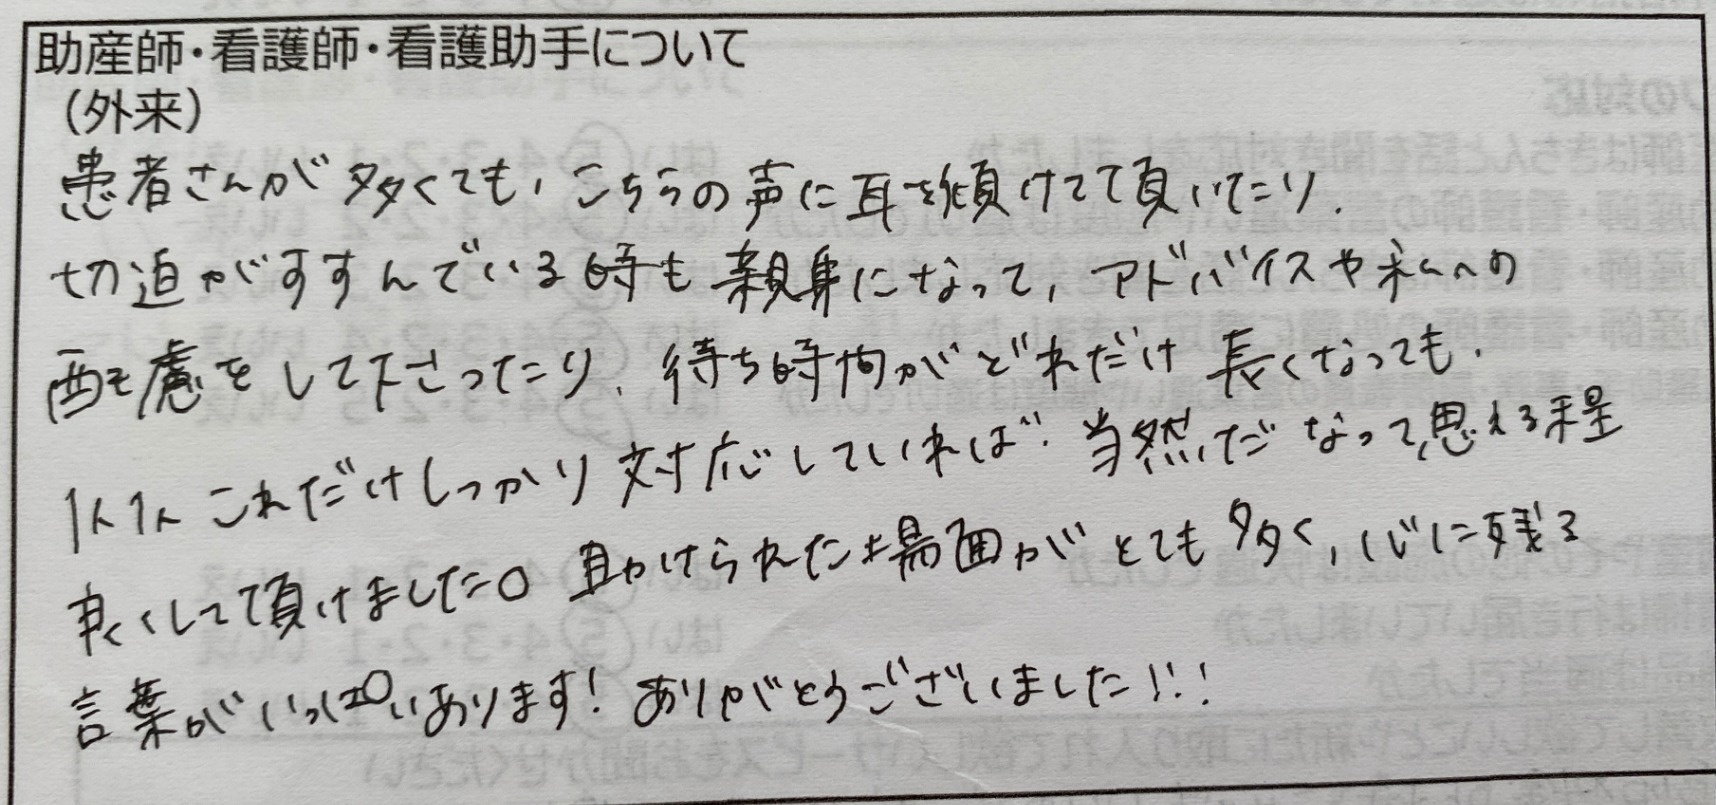 助産師・看護師・看護助手について
（外来）
患者さんが多くても、こちらの声に耳を傾けてて頂いたり、
切迫がすすんでいる時も親身になって、アドバイスや私への
配慮をして下さったり、待ち時間がどれだけ長くなっても、
1人1人これだけしっかり対応していれば、当然だなって思える程
良くして頂けました。助けられた場面がとても多く、心に残る
言葉がいっぱいあります！ありがとうございました!!!